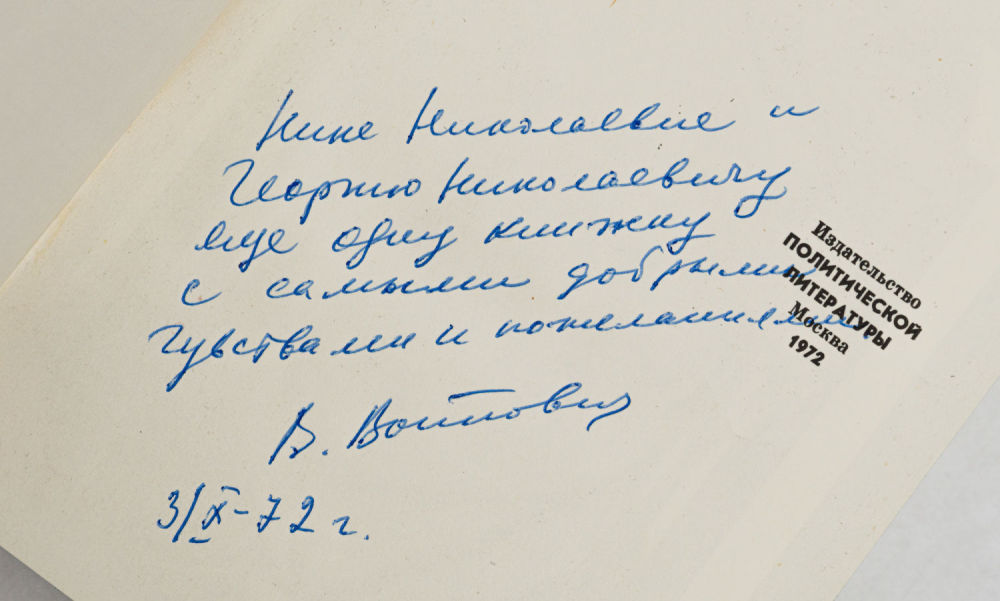 Нине Николаевне и
Георгию Николаевичу
еще одну книжку
с самыми добрыми
чувствами и пожеланиями
В. Войнович
3/X-72 г.
Издательство
ПОЛИТИЧЕСКОЙ
ЛИТЕРАТУРЫ
Москва
1972